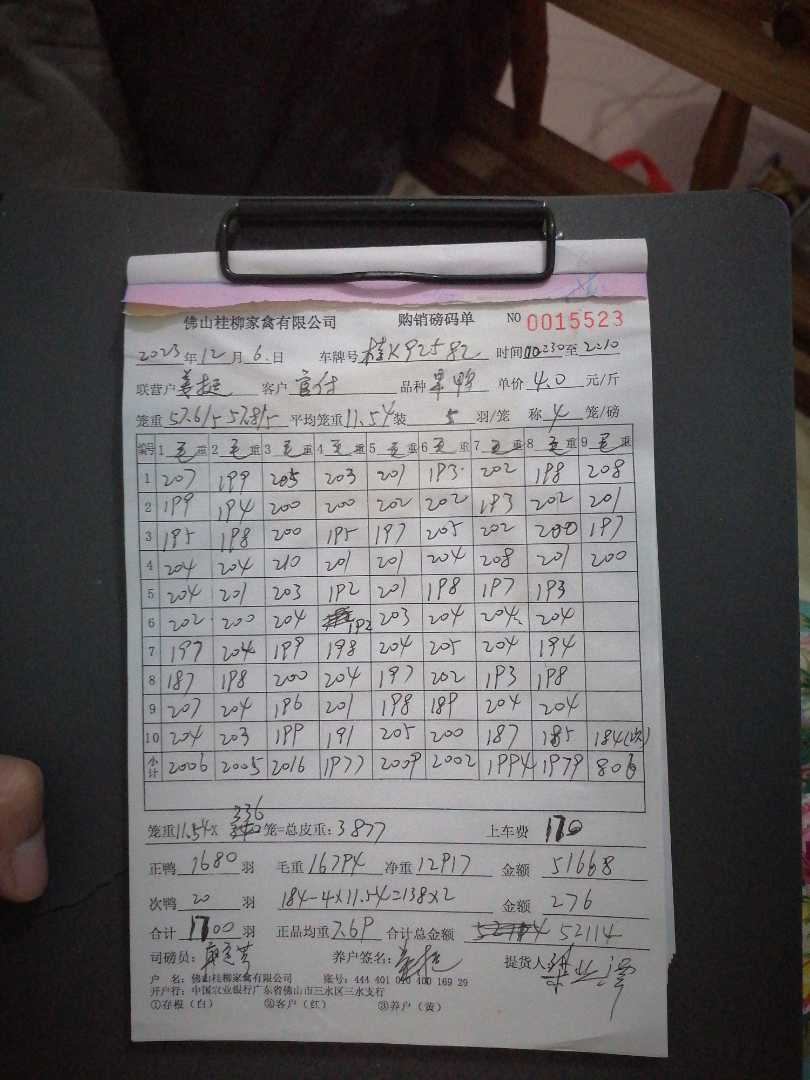 佛山桂柳家禽有限公司 购销磅码单 NO 0015523
2023年12月6日 车牌号 桂K92582 时间 00:30至2:10
联营户 姜挺 客户 官付 品种 单价 4.0 元/斤
笼重 57.6/5 57.8/5 平均笼重 11.54 装 5 羽/笼 称 4 笼/磅
编号 1 毛重 2 毛重 3 毛重 4 毛重 5 毛重 6 毛重 7 毛重 8 毛重 9 毛重
1 207 199 205 203 201 193 202 198 208
2 199 194 200 200 202 202 193 202 201
3 195 198 200 195 197 205 202 200 197
4 204 204 210 201 201 204 208 201 200
5 204 201 203 192 201 198 197 193
6 202 200 204 192 203 204 204 204
7 197 204 199 198 204 205 204 194
8 187 198 200 204 197 202 193 198
9 207 204 196 201 198 189 204 204
10 204 203 199 191 205 200 187 185 184(次)
小计 2006 2005 2016 1977 2009 2002 1994 1979 806
336
笼重 11.54 X 笼=总皮重: 3877 上车费 170
正鸭 1680 羽 毛重 16794 净重 12917 金额 51668
次鸭 20 羽 184-4×11.54=138×2 金额 276
合计 1700 羽 正品均重 7.69 合计总金额 52114
司磅员: 养户签名: 姜挺 提货人:
户 名: 佛山桂柳家禽有限公司 账号: 444 401 010 400 169 29
开户行: 中国农业银行广东省佛山市三水区三水支行
①存根(白) ②客户(红) ③养户(黄)